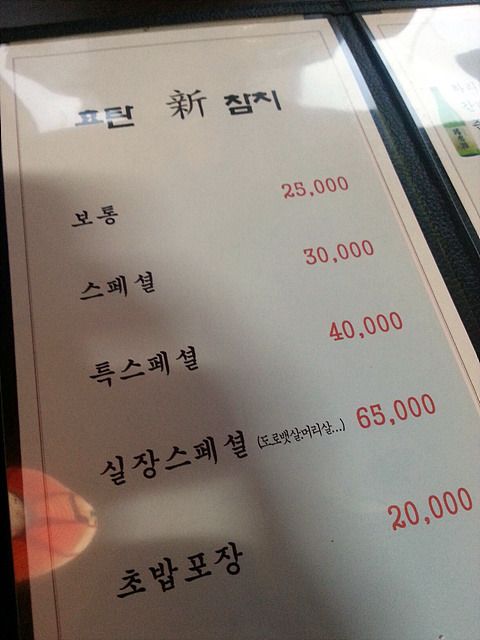 표탄 新 참치
보통 25,000
스페셜 30,000
특스페셜 40,000
실장스페셜 (도로뱃살.머리살...) 65,000
초밥포장 20,000